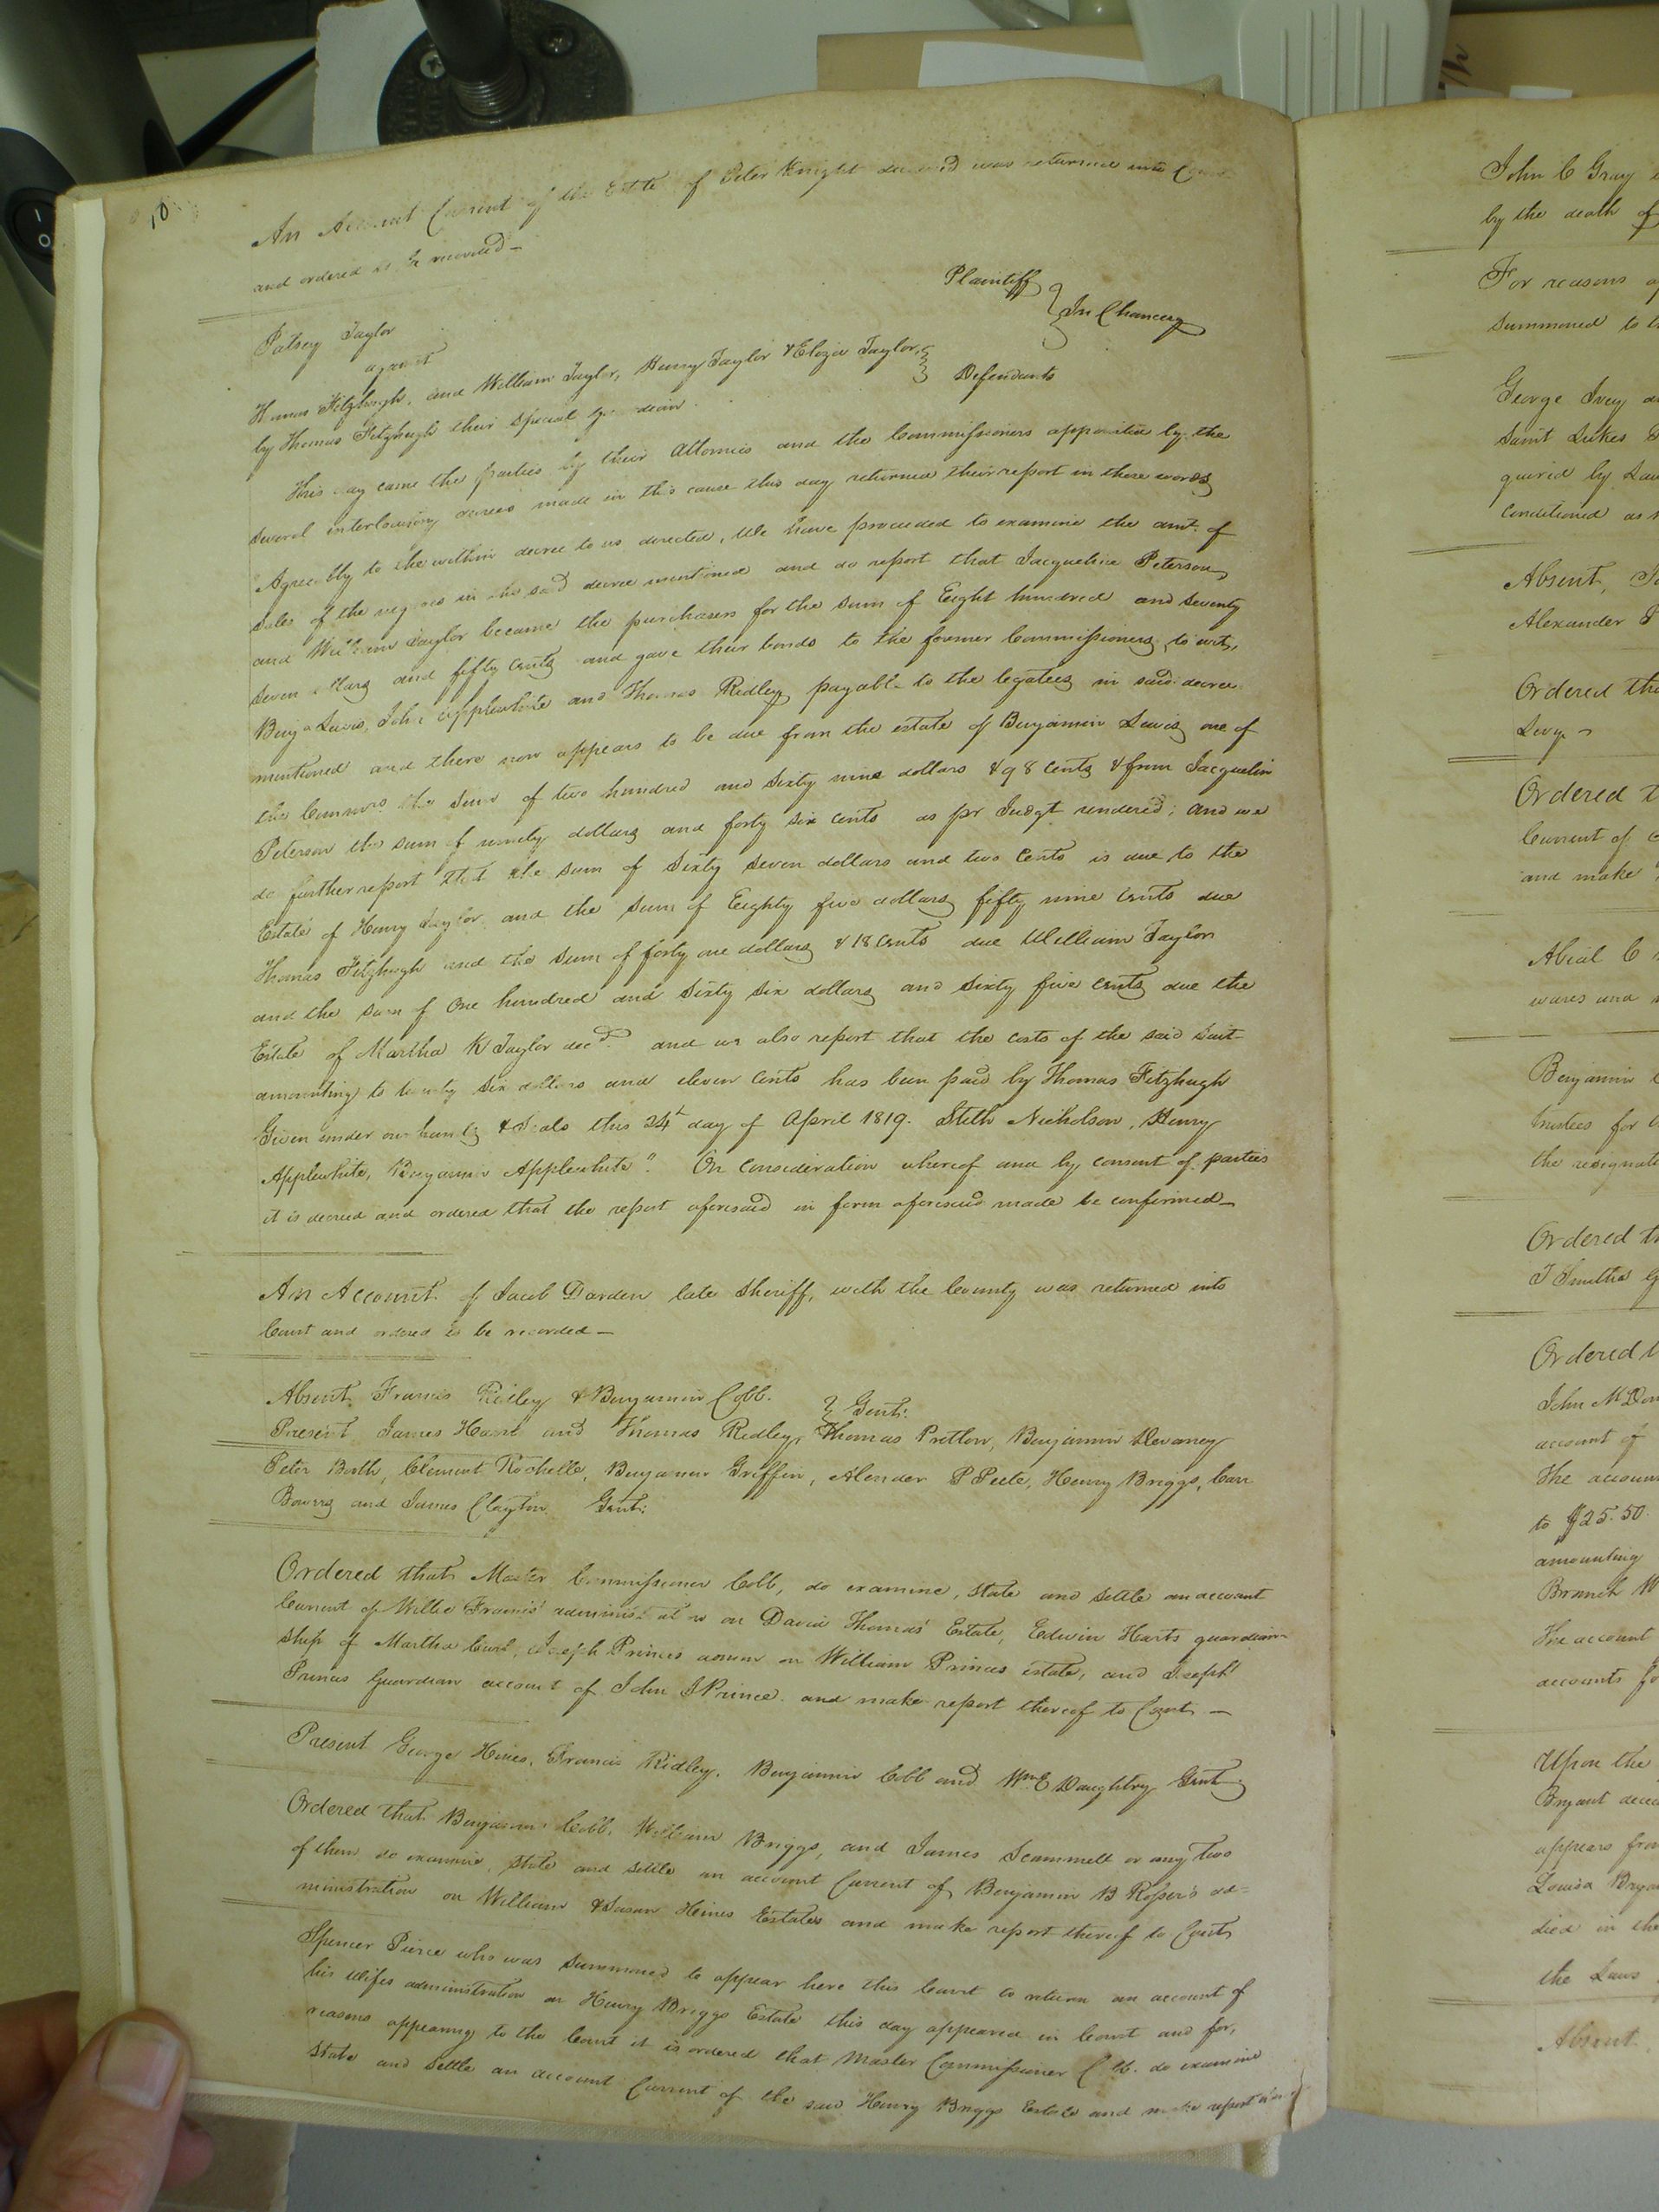 10
An Account Current of the Estate of Peter Knight deceasd was returned into Court
and ordered to be recorded —
Patsey Taylor Plaintiff
against } In Chancery
Thomas Fitzhugh, and William Taylor, Henry Taylor & Eliza Taylor, }
by Thomas Fitzhugh their special guardian Defendants
This day came the parties by their Attornies and the Commissioners appointed by the
several interlocutory decrees made in this cause this day returned their report in these words
"Agreeably to the within decree to us directed, We have proceeded to examine the amt. of
sales of the negroes in the said decree mentioned and do report that Jacqueline Peterson
and William Taylor became the purchasers for the sum of Eight hundred and seventy
seven dollars and fifty cents and gave their bonds to the former Commissioners, to wit,
Benja Lewis, John Applewhite and Thomas Ridley payable to the legatees in said decree
mentioned and there now appears to be due from the estate of Benjamin Lewis one of
the Commrs. the sum of two hundred and sixty nine dollars & 98 Cents & from Jacquelin
Peterson the sum of ninety dollars and forty six cents as pr Judgt rendered; and we
do further report that the sum of Sixty seven dollars and two Cents is due to the
Estate of Henry Taylor and the sum of Eighty five dollars fifty nine Cents due
Thomas Fitzhugh and the sum of forty one dollars & 18 Cents due William Taylor
and the sum of One hundred and sixty six dollars and sixty five cents due the
Estate of Martha K Taylor decd. and we also report that the costs of the said suit
amounting to twenty six dollars and eleven Cents has been paid by Thomas Fitzhugh
Given under our hands & Seals this 24t day of April 1819. Stith Nicholson, Henry
Applewhite, Benjamin Applewhite". On Consideration whereof and by consent of parties
it is decreed and ordered that the report aforesaid in form aforesaid made be confirmed —
An Account of Jacob Darden late Sheriff, with the County was returned into
Court and ordered to be recorded —
Absent, Francis Ridley & Benjamin Cobb. } Gent:
Present James Hart and Thomas Ridley, Thomas Pretlow, Benjamin Devaney
Peter Booth, Clement Rochelle, Benjamin Griffin, Alexander P Peete, Henry Briggs, Carr
Bowers and James Clayton Gent:
Ordered that Master Commissioner Cobb, do examine, state and settle an account
Current of Willie Francis' administration on David Thomas' Estate, Edwin Harts guardian
ship of Martha , Joseph Princes admn on William Princes estate, and Joseph
Princes Guardian account of John J Prince and make report thereof to Court —
Present George Hines, Francis Ridley, Benjamin Cobb and Wm E Daughtry Gent
Ordered that Benjamin Cobb, William Briggs, and James Scammell or any two
of them do examine, state and settle an account Current of Benjamin B Rosser's ad=
ministration on William & Susan Hines Estates and make report thereof to Court
Spencer Pierce who was summoned to appear here this Court to return an account of
his wifes administration on Henry Briggs Estate this day appeared in Court and for,
reasons appearing to the Court it is ordered that Master Commissioner Cobb. do examine
state and settle an account Current of the said Henry Briggs Estate and make report
John C Gray
by the death of
For reasons
summoned to
George Ivey
Saint Lukes
quired by Law
Conditioned as
Absent,
Alexander P
Ordered that
Levy
Ordered
Current of
and make
Abial C
wares and
Benjamin
trustees for
the resignat
Ordered
J Smiths
Ordered
John McDon
account of
The account
to $25.50
amounting
Branch W
The account
accounts for
Upon the
Bryant dece
appears from
Louisa Bryan
died in the
the Laws
Absent.